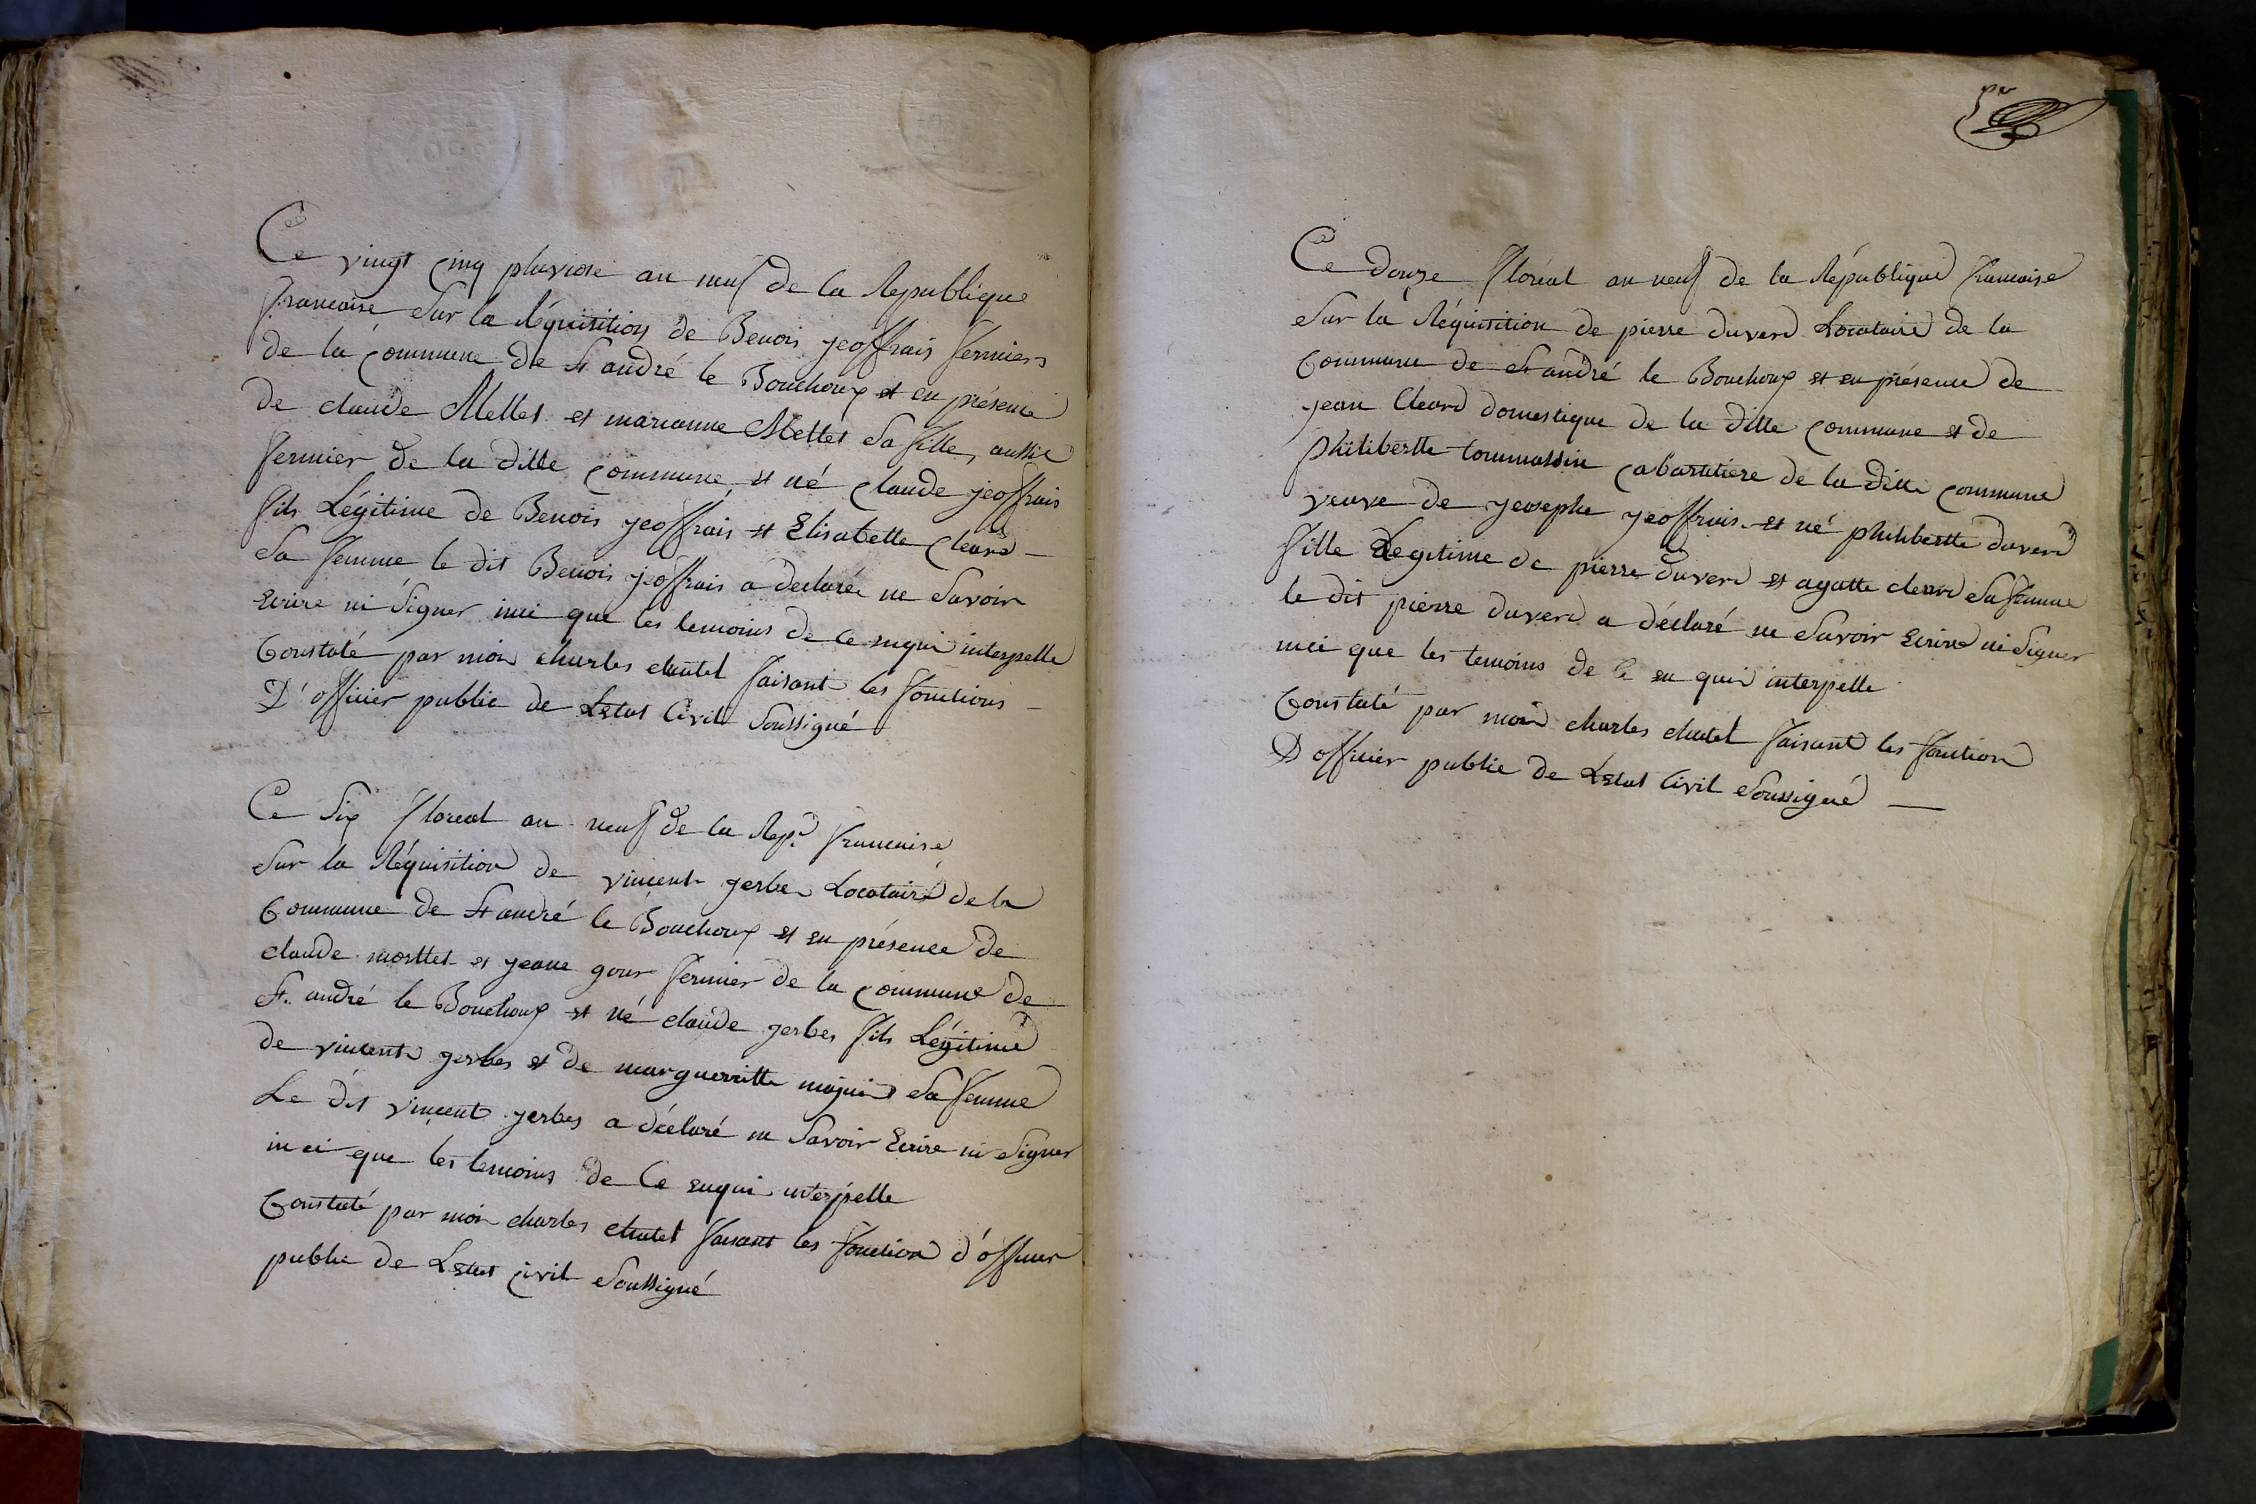 Ce vingt cinq pluviose an neuf de la Republique
francaise sur la Réquisition de Benois jeoffrais fermier
de la commune de St andré le Bouchoux et en présence
de claude Mellet et marianne Mellet sa fille, aussie
fermier de la ditte commune et né claude jeoffrais
fils Légitime de Benois jeoffrais et Elisabette cleard
sa femme le dit Benois jeoffrais a declaré ne savoir
Ecrire ni signer inci que les temoins de ce enqui interpelle
Constaté par moi charles chatel faisant les fonctions
D'officier public de Letat Civil soussigné
Ce six floreal an neuf de la Rep.e francaise
sur la Réquisition de vincent gerbe Locataire de la
Commune de St andré le Bouchoux et en présence de
claude morttet et jeane gour fermier de la commune de
St. andré le Bouchoux et né claude gerbes fils Légitime
de vincent gerbes et de marguerritte sa femme
Le dit vincent gerbes a déclaré ne savoir Ecrire ni signer
inci que les temoins de Ce enqui interpelle
Constaté par moi charles chatel faisant les fonction d'officier
public de Letat civil soussigné
Ce douze floréal an neuf de la République francaise
sur la Réquisition de pierre duverd Locataire de la
Commune de St andré le Bouchoux et en présence de
jean Cleard domestique de la ditte commune et de
philibertte tommassin cabarttiere de la ditte commune
veuve de jeosephe jeoffrais et né philibertte duverd
fille Legitime de pierre duverd et agatte cleard sa femme
le dit pierre duverd a déclaré ne savoir Ecrire ni signer
inci que les temoins de Ce en qui interpelle
Constaté par moi charles chatel faisant les fonction
D officier public de Letat Civil soussigné